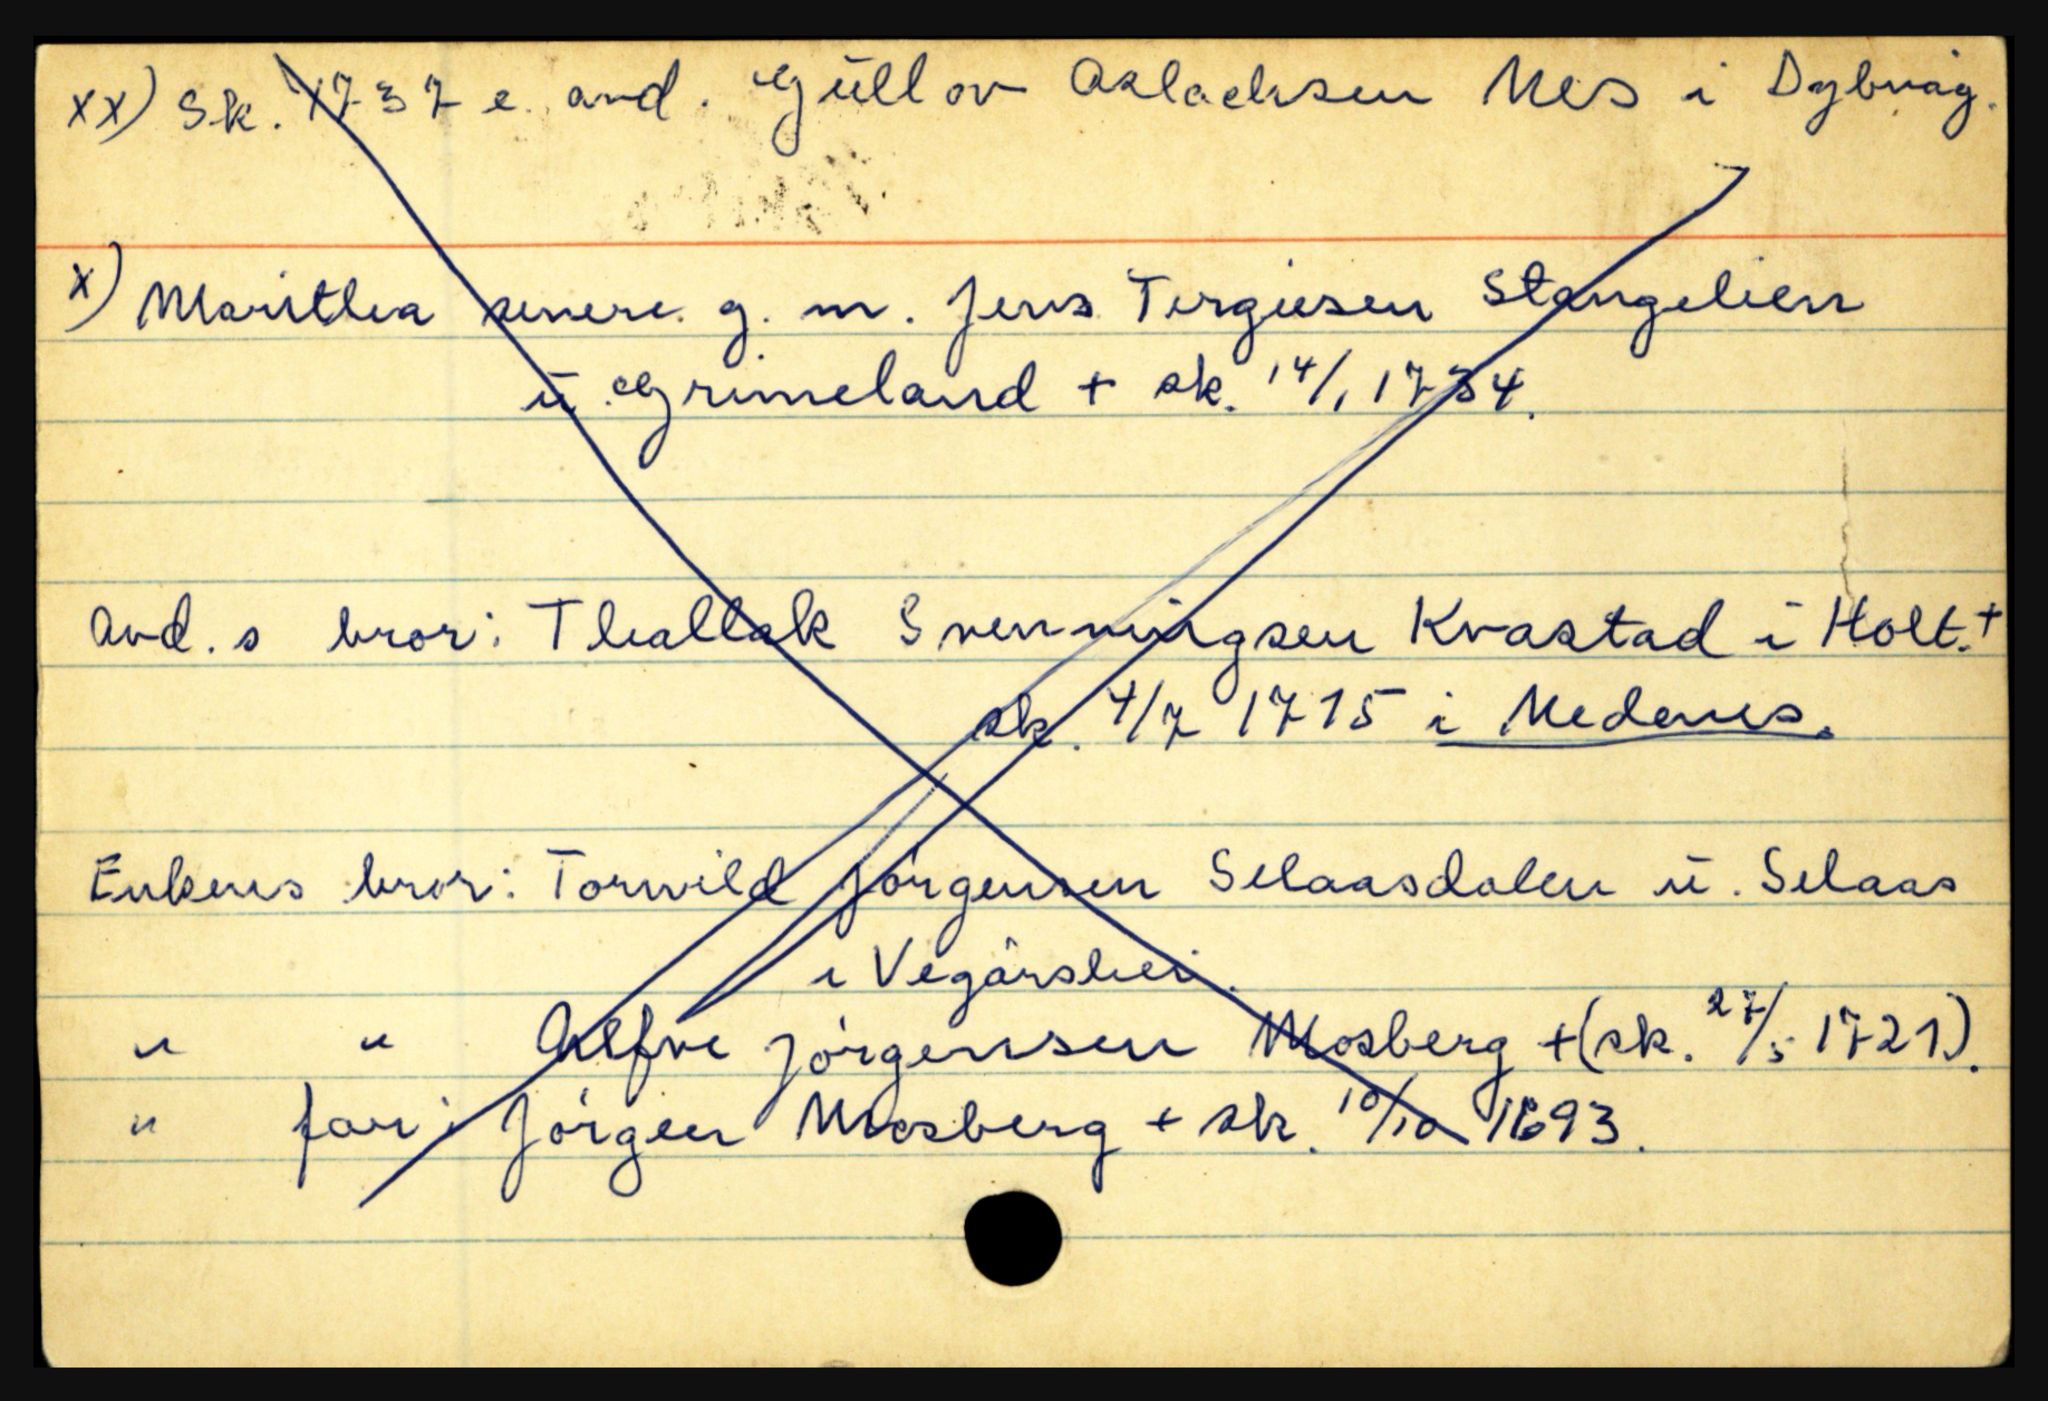 xx) Sk. 1737 e. avd. Güllov Aslachsen Nes i Dybvåg.
x) Marithea senere. g. m. Jens Tergiesen Stangelien
ü. Grimeland + sk. 14/1 1734.
Avd. s bror: Thallak Svenningsen Kvastad i Holt. +
sk. 4/7 1715 i Nedenes.
Enkens bror: Torvild Jörgensen Selaasdalen ü. Selaas
i Vegårshei.
" " Alfve Jörgensen Mosberg + (sk. 27/5 1721).
" far: Jörgen Mosberg + sk. 10/10 1693.